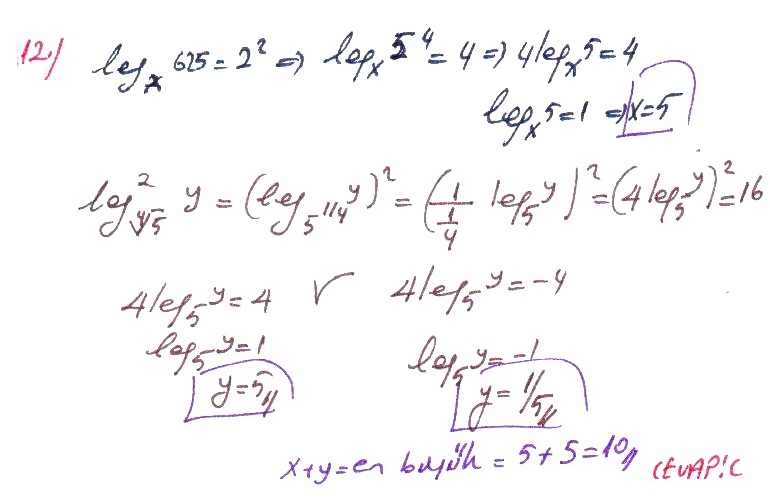 12-) log_x 625 = 2² ⇒ log_x 5⁴ = 4 ⇒ 4 log_x 5 = 4
log_x 5 = 1 ⇒ x = 5
log²_∜5 y = (log_5^1/4 y)² = (1/(1/4) log_5 y)² = (4 log_5 y)² = 16
4 log_5 y = 4 ∨ 4 log_5 y = -4
log_5 y = 1 log_5 y = -1
y = 5// y = 1/5//
x + y = en büyük = 5 + 5 = 10// CEVAP: C